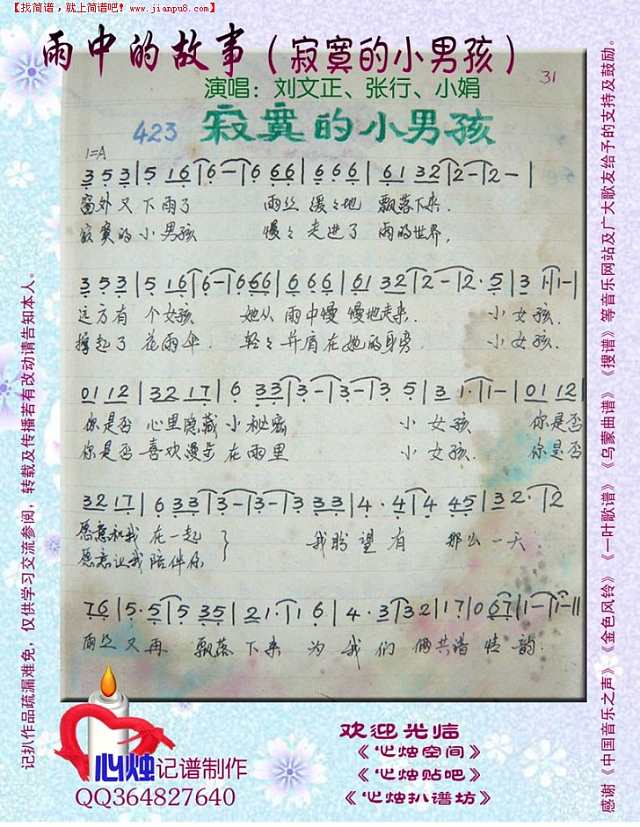 【找简谱，就上简谱吧! www.jianpu8.com】
雨中的故事（寂寞的小男孩）
演唱：刘文正、张行、小娟
31
423 寂寞的小男孩
1=A
3 5 3 | 5 1 6 | 6 - | 6 6 6 6 | 6 6 6 | 6 1 3 2 | 2 - | 2 - |
窗外又下雨了 雨丝缓々地 飘落下来.
寂寞的小男孩 慢々走进了 雨的世界,
3 5 3 | 5 1 6 | 6 - | 6 6 6 | 6 6 6 | 6 1 3 2 | 2 - | 2 · 5 | 3 1 | 1 - |
远方有个女孩 她从雨中慢慢地走来. 小女孩.
撑起了花雨伞. 轻々并肩在她的身旁 小女孩.
0 1 1 2 | 3 2 1 7 | 6 3 3 | 3 - | 3 - | 3 5 | 3 1 · | 1 - | 0 1 1 2 |
你是否 心里隐藏小秘密 小女孩 你是否
你是否喜欢漫步在雨里 小女孩. 你是否
3 2 1 7 | 6 3 3 | 3 - | 3 - | 3 3 3 | 4 · 4 | 4 4 5 | 3 2 · | 2
愿意和我在一起 我盼望有 那么一天
愿意让我陪伴你
7 6 | 5 · 5 | 5 3 5 | 2 1 · | 1 6 | 4 · 3 | 3 2 | 1 7 | 0 6 7 | 1 - | 1 - ||
雨丝又再 飘落下来 为我们 俩共谱情韵.
记扒作品疏漏难免，仅供学习交流参阅，转载及传播若有改动请告知本人。
感谢《中国音乐之声》《金色风铃》《一叶歌谱》《乌蒙曲谱》《搜谱》等音乐网站及广大歌友给予的支持及鼓励。
心烛记谱制作
QQ364827640
欢迎光临
《心烛空间》
《心烛贴吧》
《心烛扒谱坊》